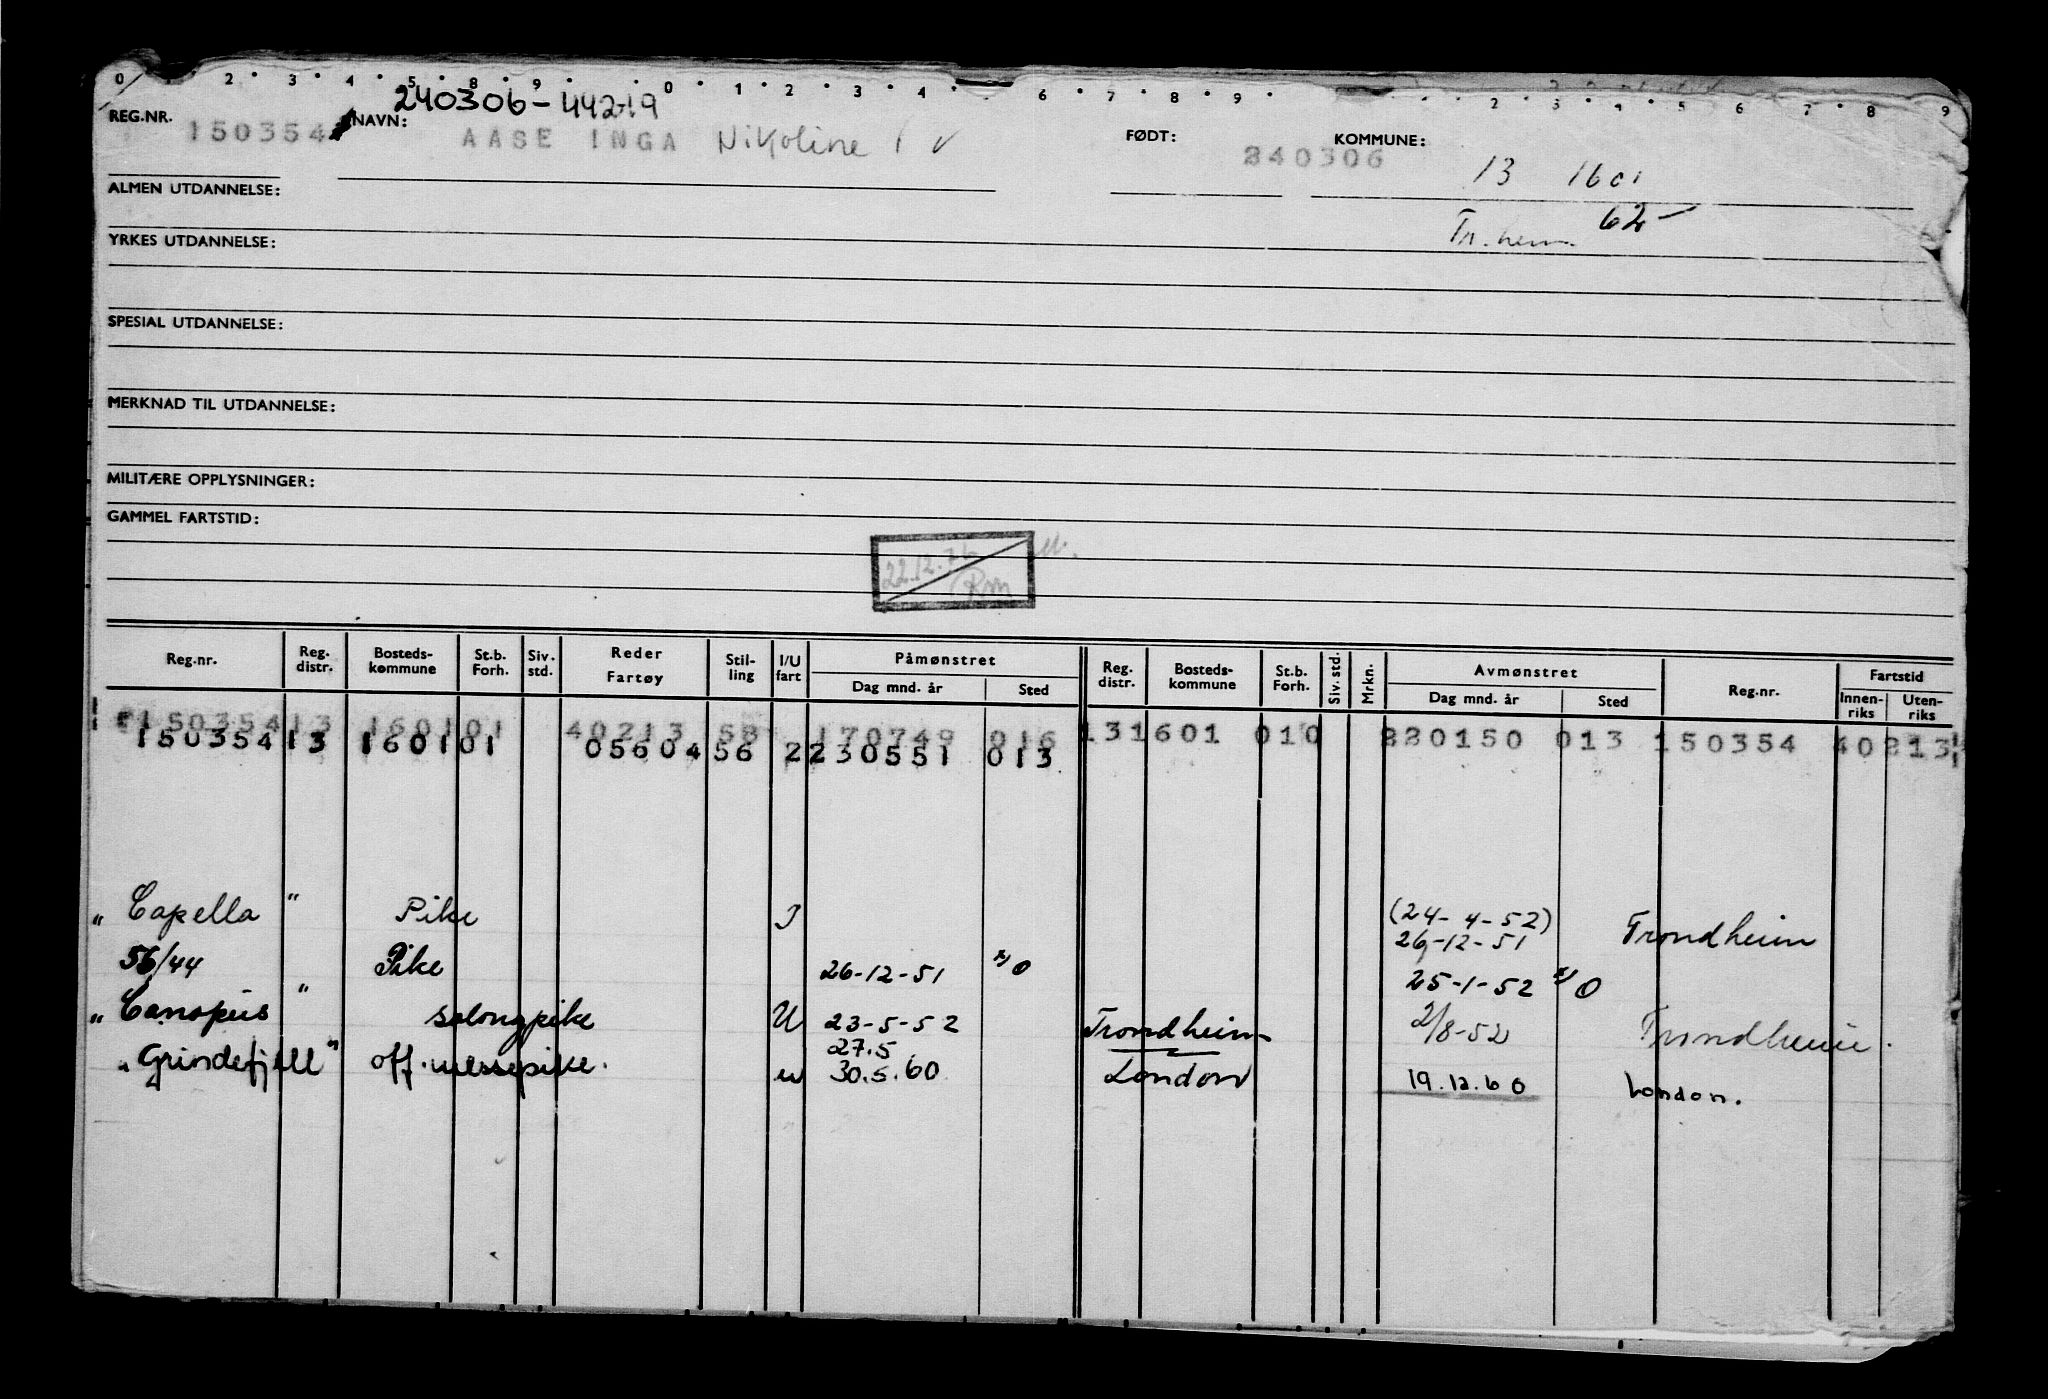 0 2 3 4 5 8 9 0 1 2 3 4 6 7 8 9 2 3 4 5 6 7 8 9
240306-44219
REG.NR. 150354 NAVN: AASE INGA Nikoline FØDT: 240306 KOMMUNE: 13 1601
ALMEN UTDANNELSE: 62-
YRKES UTDANNELSE: Tr. heim.
SPESIAL UTDANNELSE:
MERKNAD TIL UTDANNELSE:
MILITÆRE OPPLYSNINGER:
GAMMEL FARTSTID:
22.12.76
Rm
Reg.nr. Reg. distr. Bosteds-kommune St.b. Forh. Siv. std. Reder Fartøy Stil-ling I/U fart Påmønstret Dag mnd. år Sted Reg. distr. Bosteds-kommune St.b. Forh. Siv. std. Mrkn. Avmønstret Dag mnd. år Sted Reg.nr. Fartstid Innen-riks Uten-riks
150354 13 1601 01 40213 58 170749 016 13 1601 010 220150 013 150354 40213
150354 13 1601 01 05604 56 2 230551 013
"Capella" Pike I (24-4-52) 26-12-51 Trondheim
56/44 Pike 26-12-51 x) O 25-1-52 x) O
"Canopus" salongpike U 23-5-52 Trondheim 2/8-52 Trondheim.
27.5
"Grindefjell" off. messepike. u 30.5.60 London 19.12.60 London.